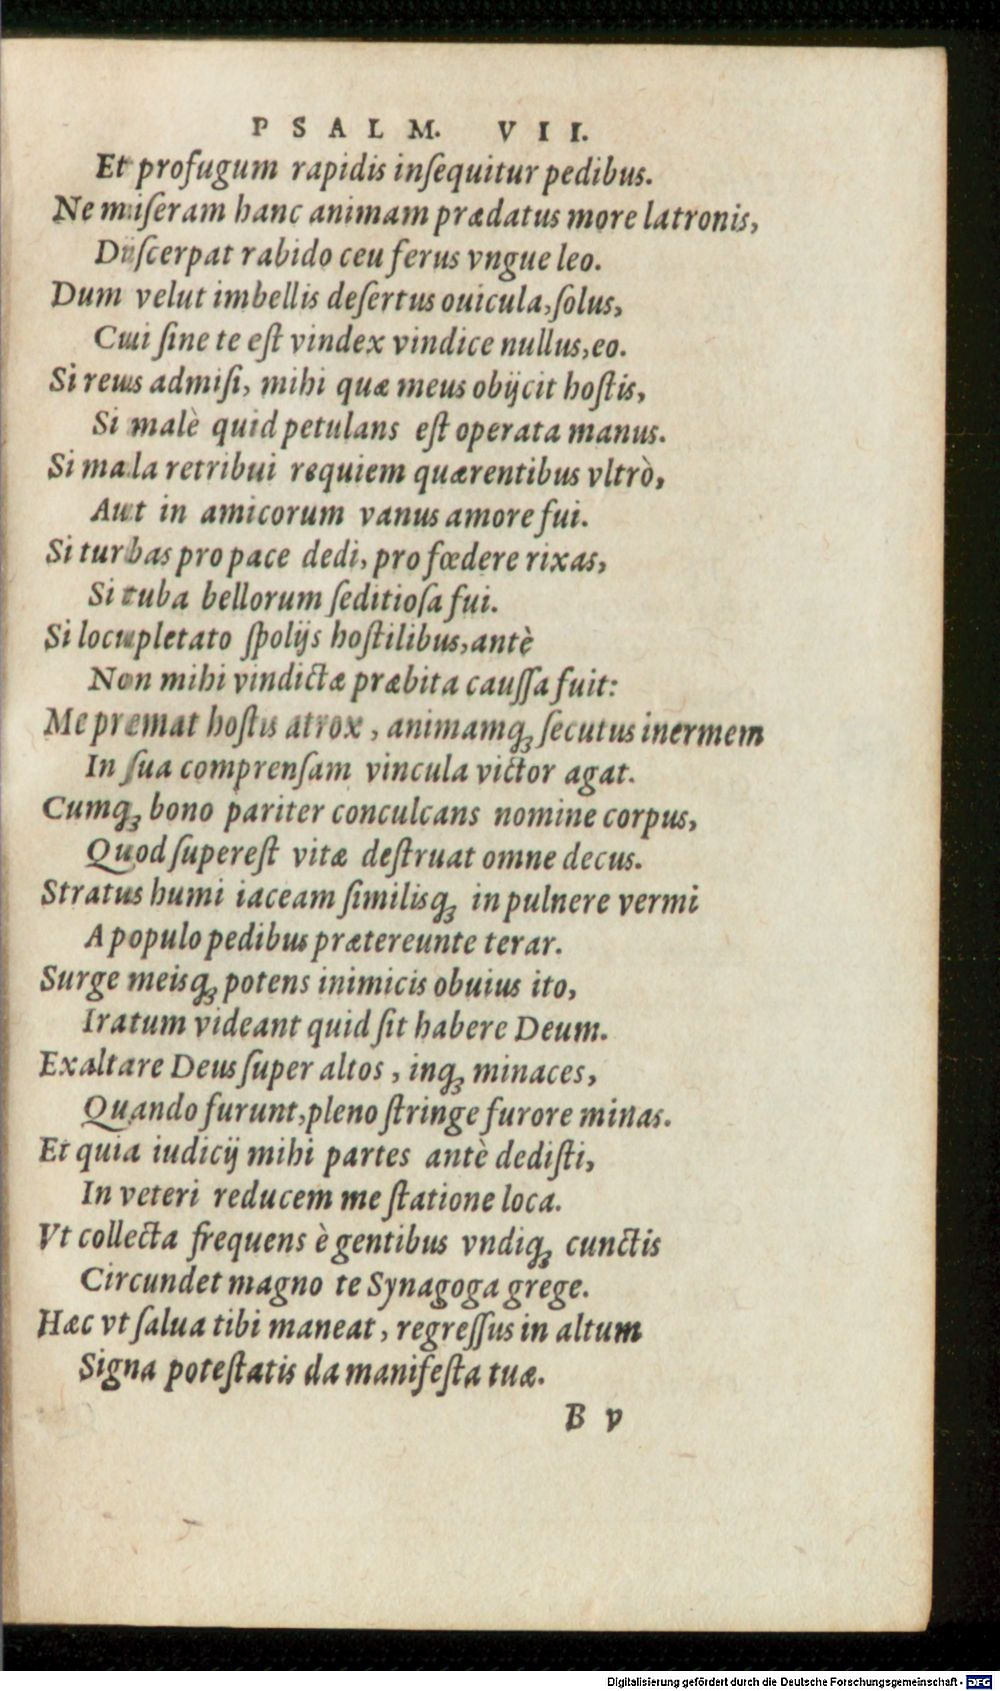 PSALM. VII.
Et profugum rapidis inſequitur pedibus.
Ne miſeram hanc animam prædatus more latronis,
Diſcerpat rabido ceu ferus vngue leo.
Dum velut imbellis deſertus ouicula, ſolus,
Cui ſine te eſt vindex vindice nullus, eo.
Si reus admiſi, mihi quæ meus obijcit hoſtis,
Si malè quid petulans eſt operata manus.
Si mala retribui requiem quærentibus vltrò,
Aut in amicorum vanus amore fui.
Si turbas pro pace dedi, pro fœdere rixas,
Si tuba bellorum ſeditioſa fui.
Si locupletato ſpolijs hoſtilibus, antè
Non mihi vindictæ præbita cauſſa fuit:
Me premat hoſtis atrox, animamq́ꝫ ſecutus inermem
In ſua comprenſam vincula victor agat.
Cumqꝫ bono pariter conculcans nomine corpus,
Quod ſupereſt vitæ deſtruat omne decus.
Stratus humi iaceam ſimilisqꝫ in puluere vermi
A populo pedibus prætereunte terar.
Surge meisqꝫ potens inimicis obuius ito,
Iratum videant quid ſit habere Deum.
Exaltare Deus ſuper altos, inqꝫ minaces,
Quando furunt, pleno ſtringe furore minas.
Et quia iudicij mihi partes antè dediſti,
In veteri reducem me ſtatione loca.
Vt collecta frequens è gentibus vndiqꝫ cunctis
Circundet magno te Synagoga grege.
Hæc vt ſalua tibi maneat, regreſſus in altum
Signa poteſtatis da manifeſta tuæ.
B v
Digitalisierung gefördert durch die Deutsche Forschungsgemeinschaft - DFG